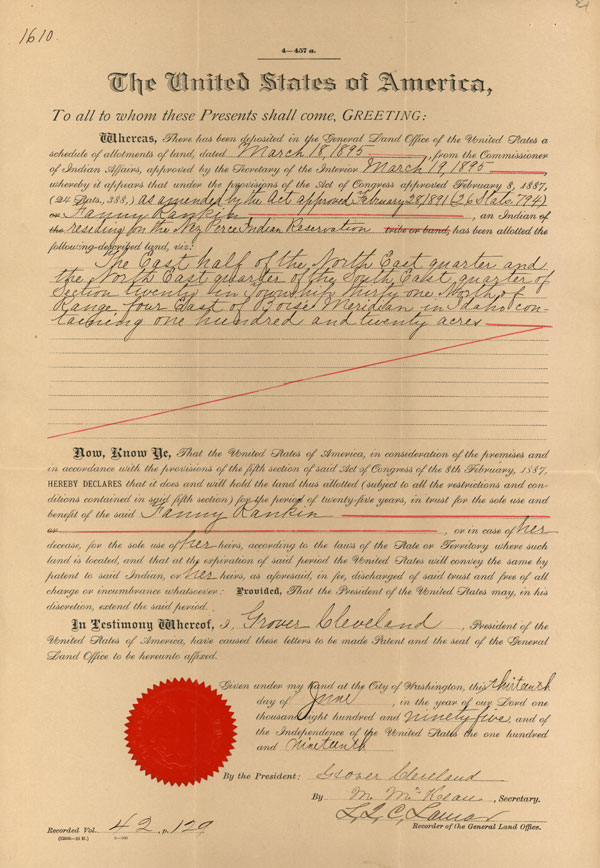 1610.
4—457 a.
The United States of America,
To all to whom these Presents shall come, GREETING:
Whereas, There has been deposited in the General Land Office of the United States a
schedule of allotments of land, dated March 18, 1895, from the Commissioner
of Indian Affairs, approved by the Secretary of the Interior March 19, 1895,
whereby it appears that under the provisions of the Act of Congress approved February 8, 1887,
(24 Stats., 388,) as amended by the Act approved February 28 1891 (26 Stats. 794)
or Fanny Rankin, an Indian of
the residing on the Nez Perce Indian Reservation tribe or band, has been allotted the
following-described land, viz:
The East half of the North East quarter and
the North East quarter of the South East quarter of
Section twenty in Township thirty one North of
Range four East of Boise Meridian in Idaho con-
taining one hundred and twenty acres
Now, Know Ye, That the United States of America, in consideration of the premises and
in accordance with the provisions of the fifth section of said Act of Congress of the 8th February, 1887,
HEREBY DECLARES that it does and will hold the land thus allotted (subject to all the restrictions and con-
ditions contained in said fifth section) for the period of twenty-five years, in trust for the sole use and
benefit of the said Fanny Rankin
or, or in case of her
decease, for the sole use of her heirs, according to the laws of the State or Territory where such
land is located, and that at the expiration of said period the United States will convey the same by
patent to said Indian, or her heirs, as aforesaid, in fee, discharged of said trust and free of all
charge or incumbrance whatsoever: Provided, That the President of the United States may, in his
discretion, extend the said period.
In Testimony Whereof, I, Grover Cleveland, President of the
United States of America, have caused these letters to be made Patent and the seal of the General
Land Office to be hereunto affixed.
Given under my hand at the City of Washington, this thirteenth
day of June, in the year of our Lord one
thousand eight hundred and ninety five and of
the Independence of the United States the one hundred
and nineteenth
By the President: Grover Cleveland
By M. McKean, Secretary.
L. Q. C. Lamar
Recorder of the General Land Office.
Recorded Vol. 42, p. 129